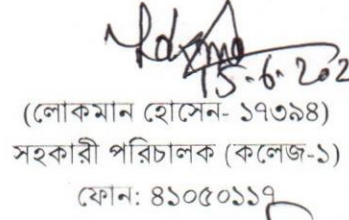 15-6-202
(লোকমান হোসেন- ১৭৩৯৪)
সহকারী পরিচালক (কলেজ-১)
ফোন: ৪১০৫০১১৭